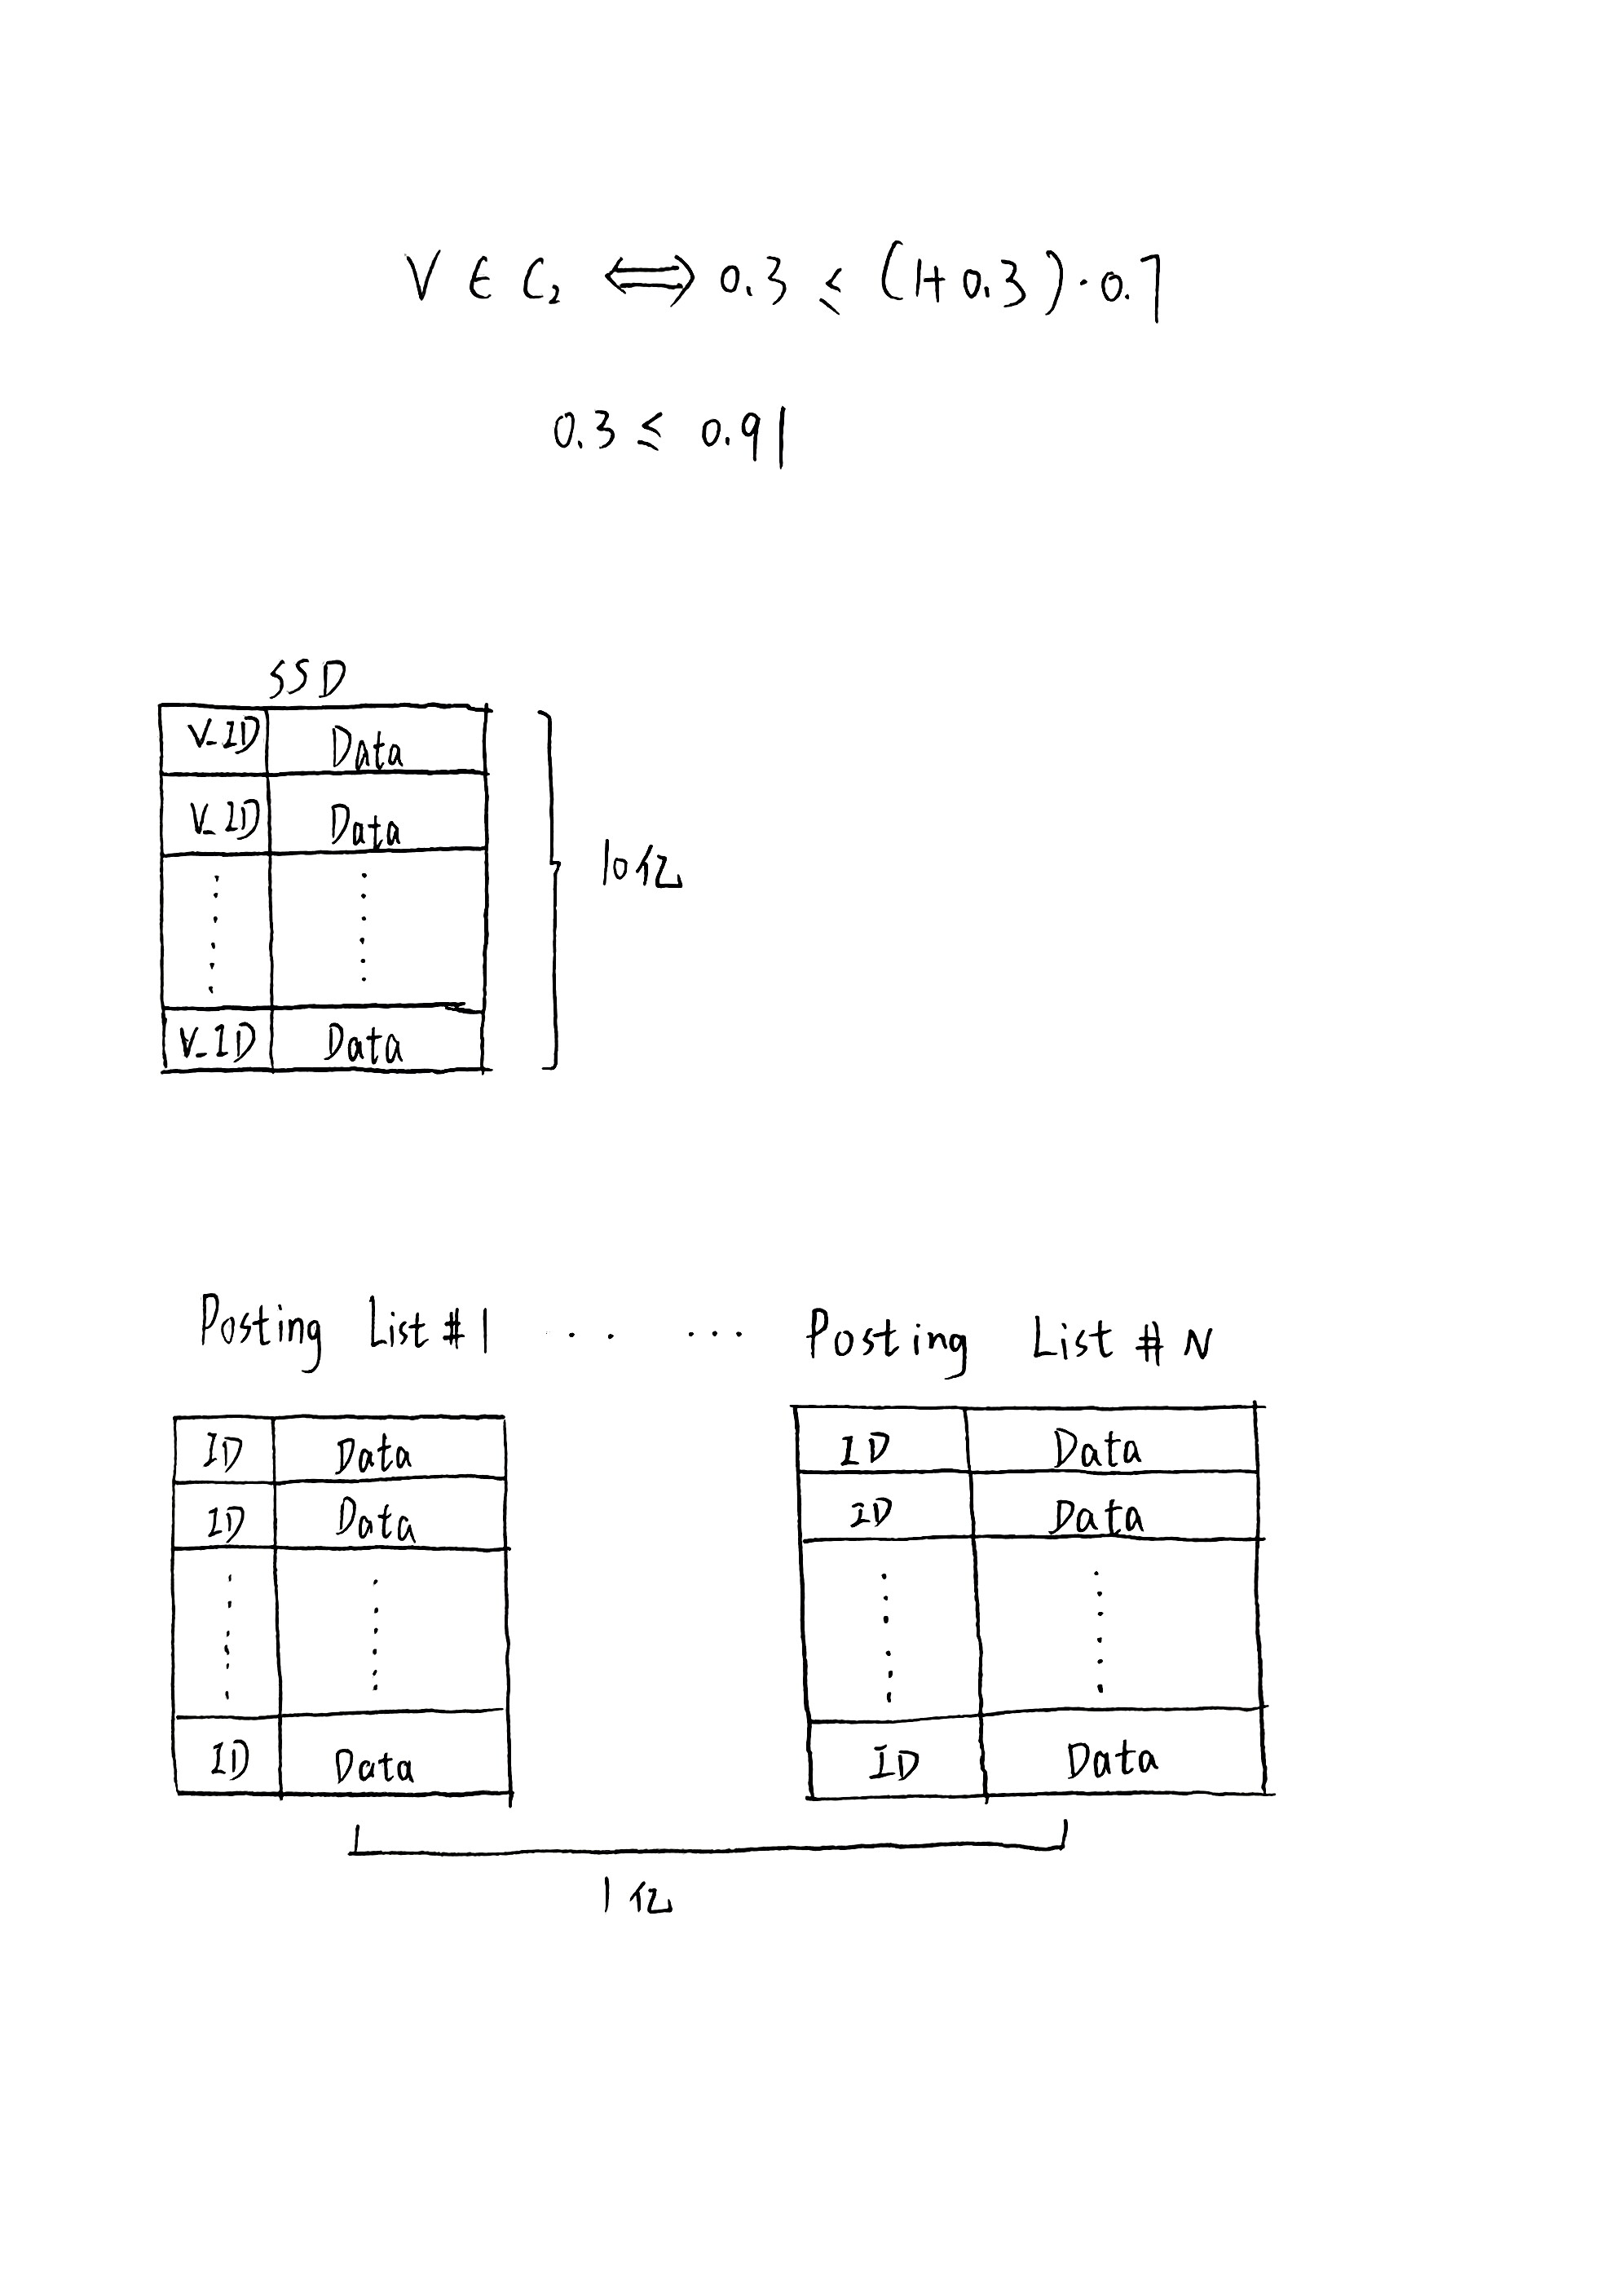 V ∈ C₂ ⟺ 0.3 ≤ (1+0.3)·0.7
0.3 ≤ 0.91
SSD
V_ID Data
V_ID Data
10亿
V_ID Data
Posting List #1 ..... Posting List # N
ID Data ID Data
ID Data ID Data
ID Data ID Data
1亿